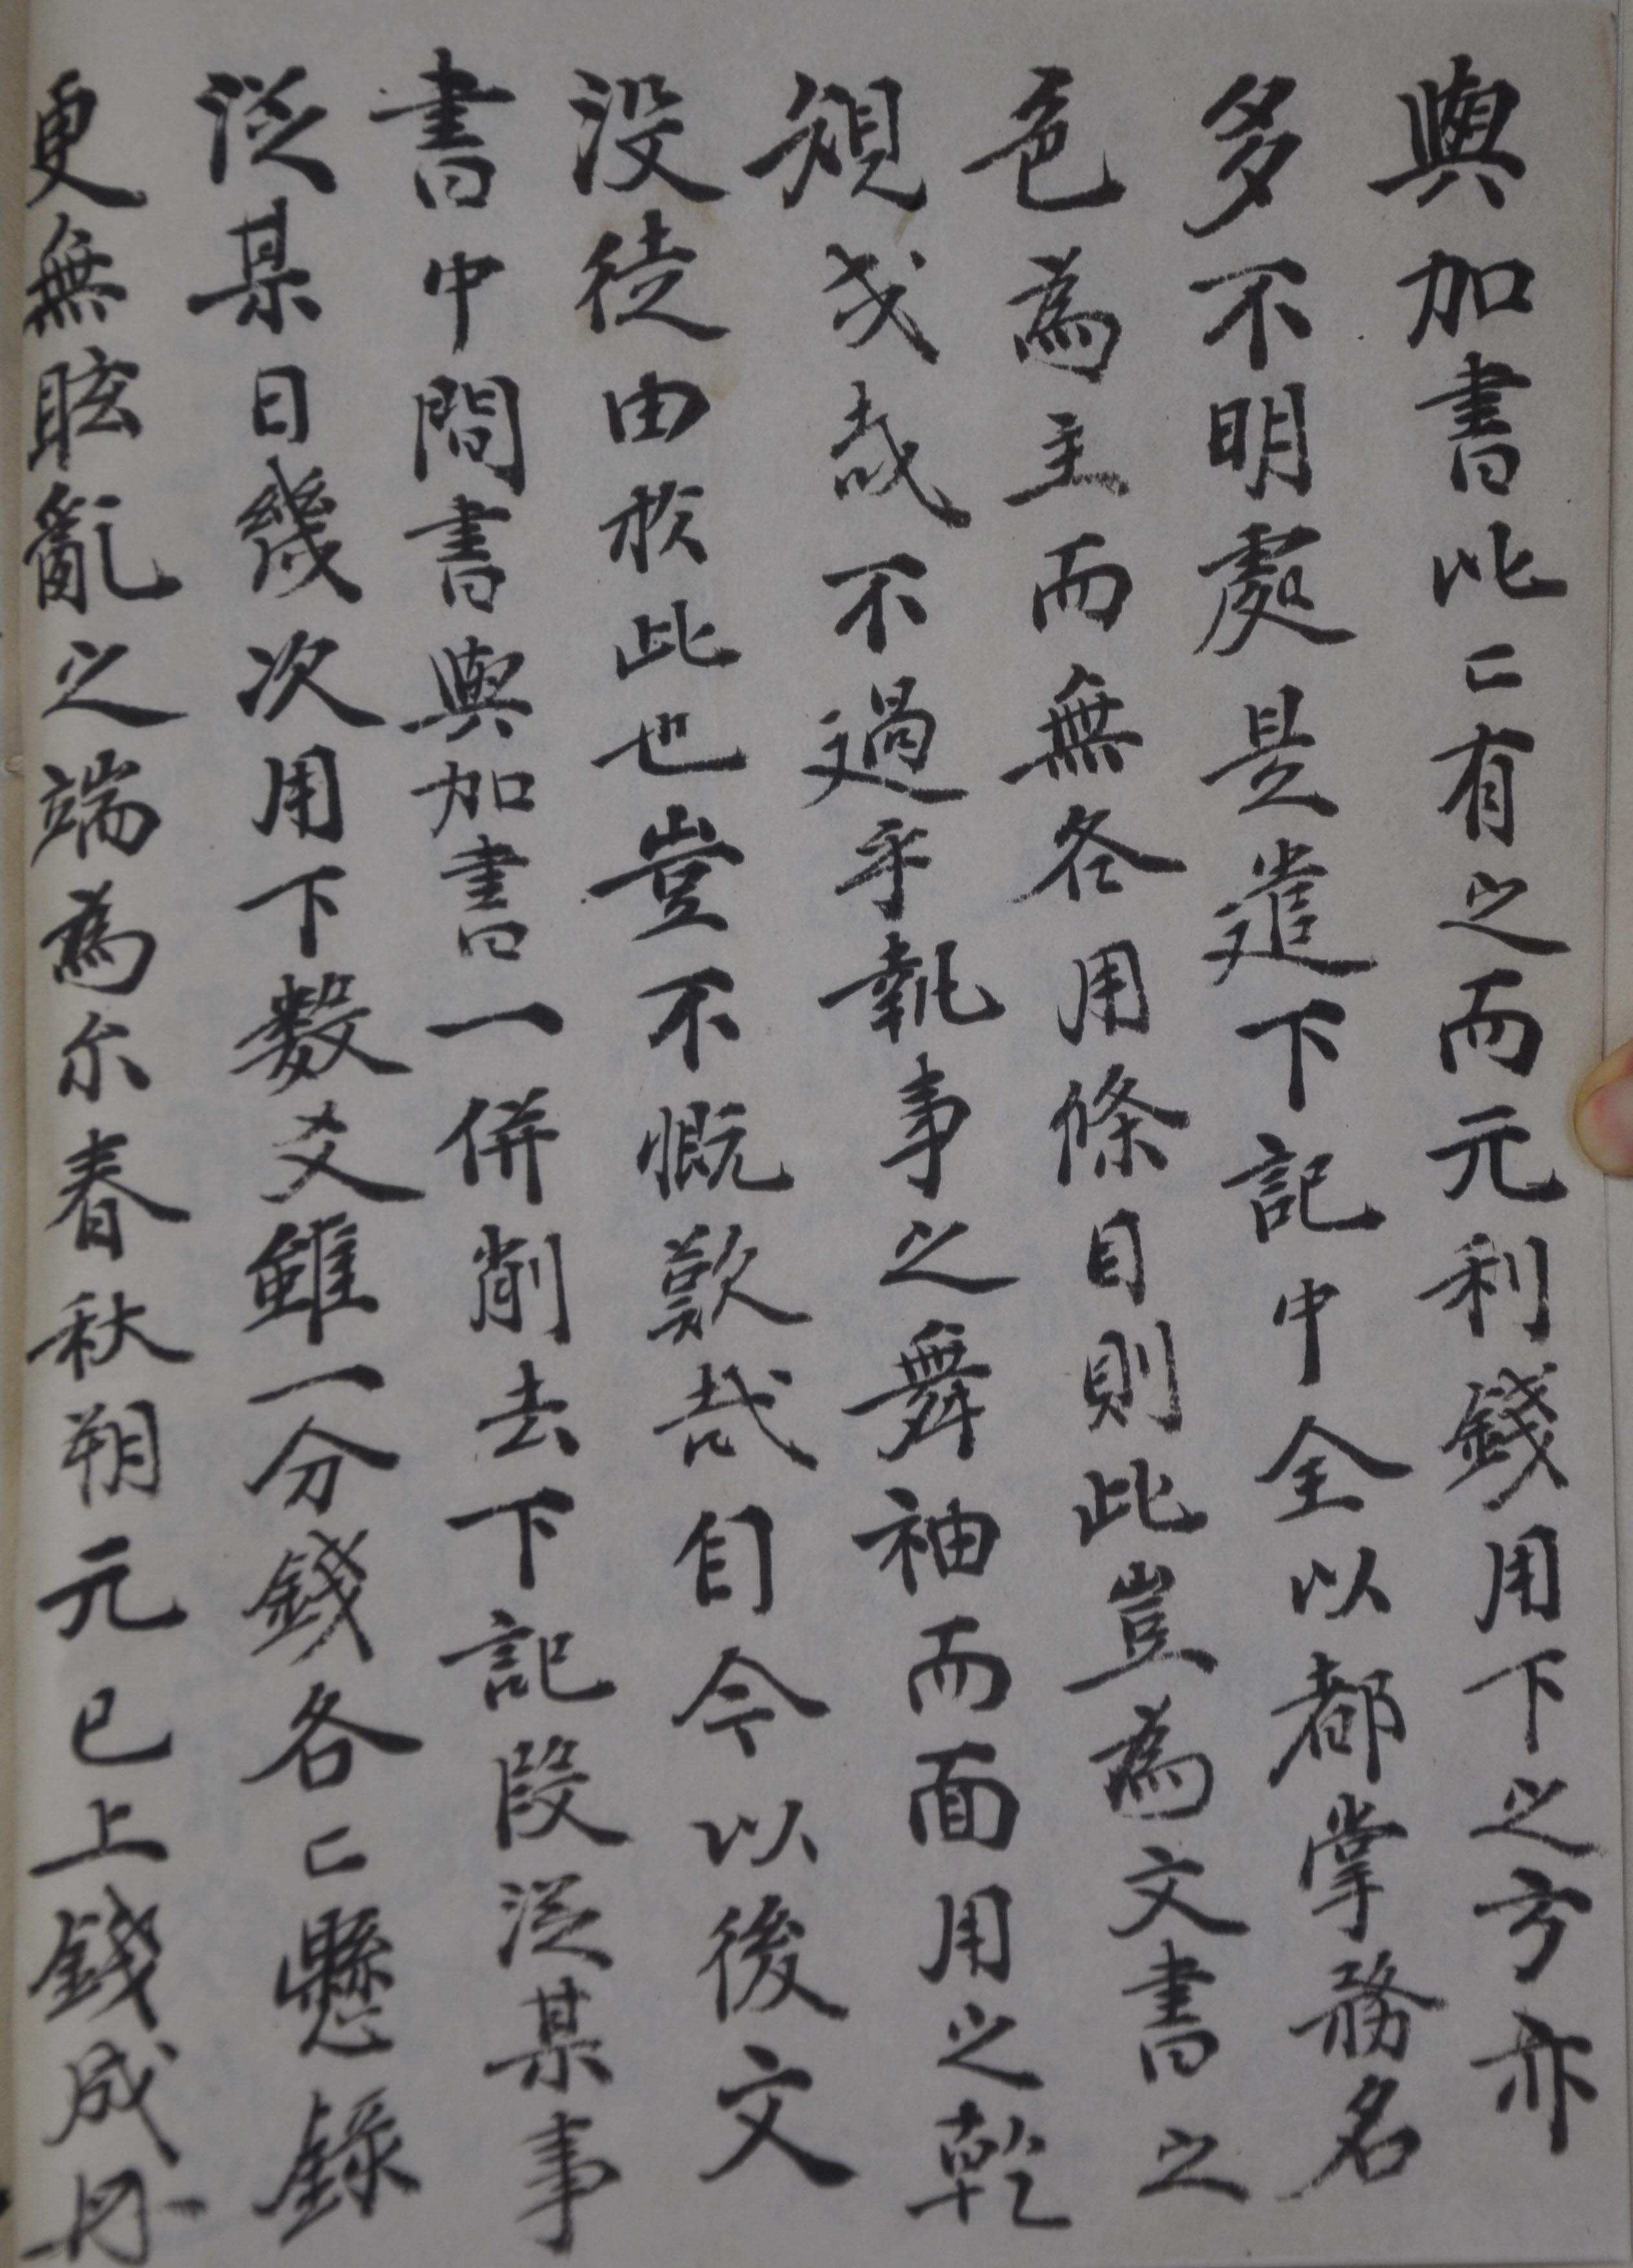 與加書比〻有之而元利錢用下之方亦
多不明處是遣下記中全以都掌務名
色為主而無各用條目則此豈為文書之
規或哉不過乎執事之舞袖而面用之乾
没徒由於此也豈不慨歎哉自今以後文
書中間書與加書一併削去下記段從某事
從某日幾次用下數爻雖一分錢各〻懸錄
更無眩亂之端為尒春秋朔元已上錢成冊